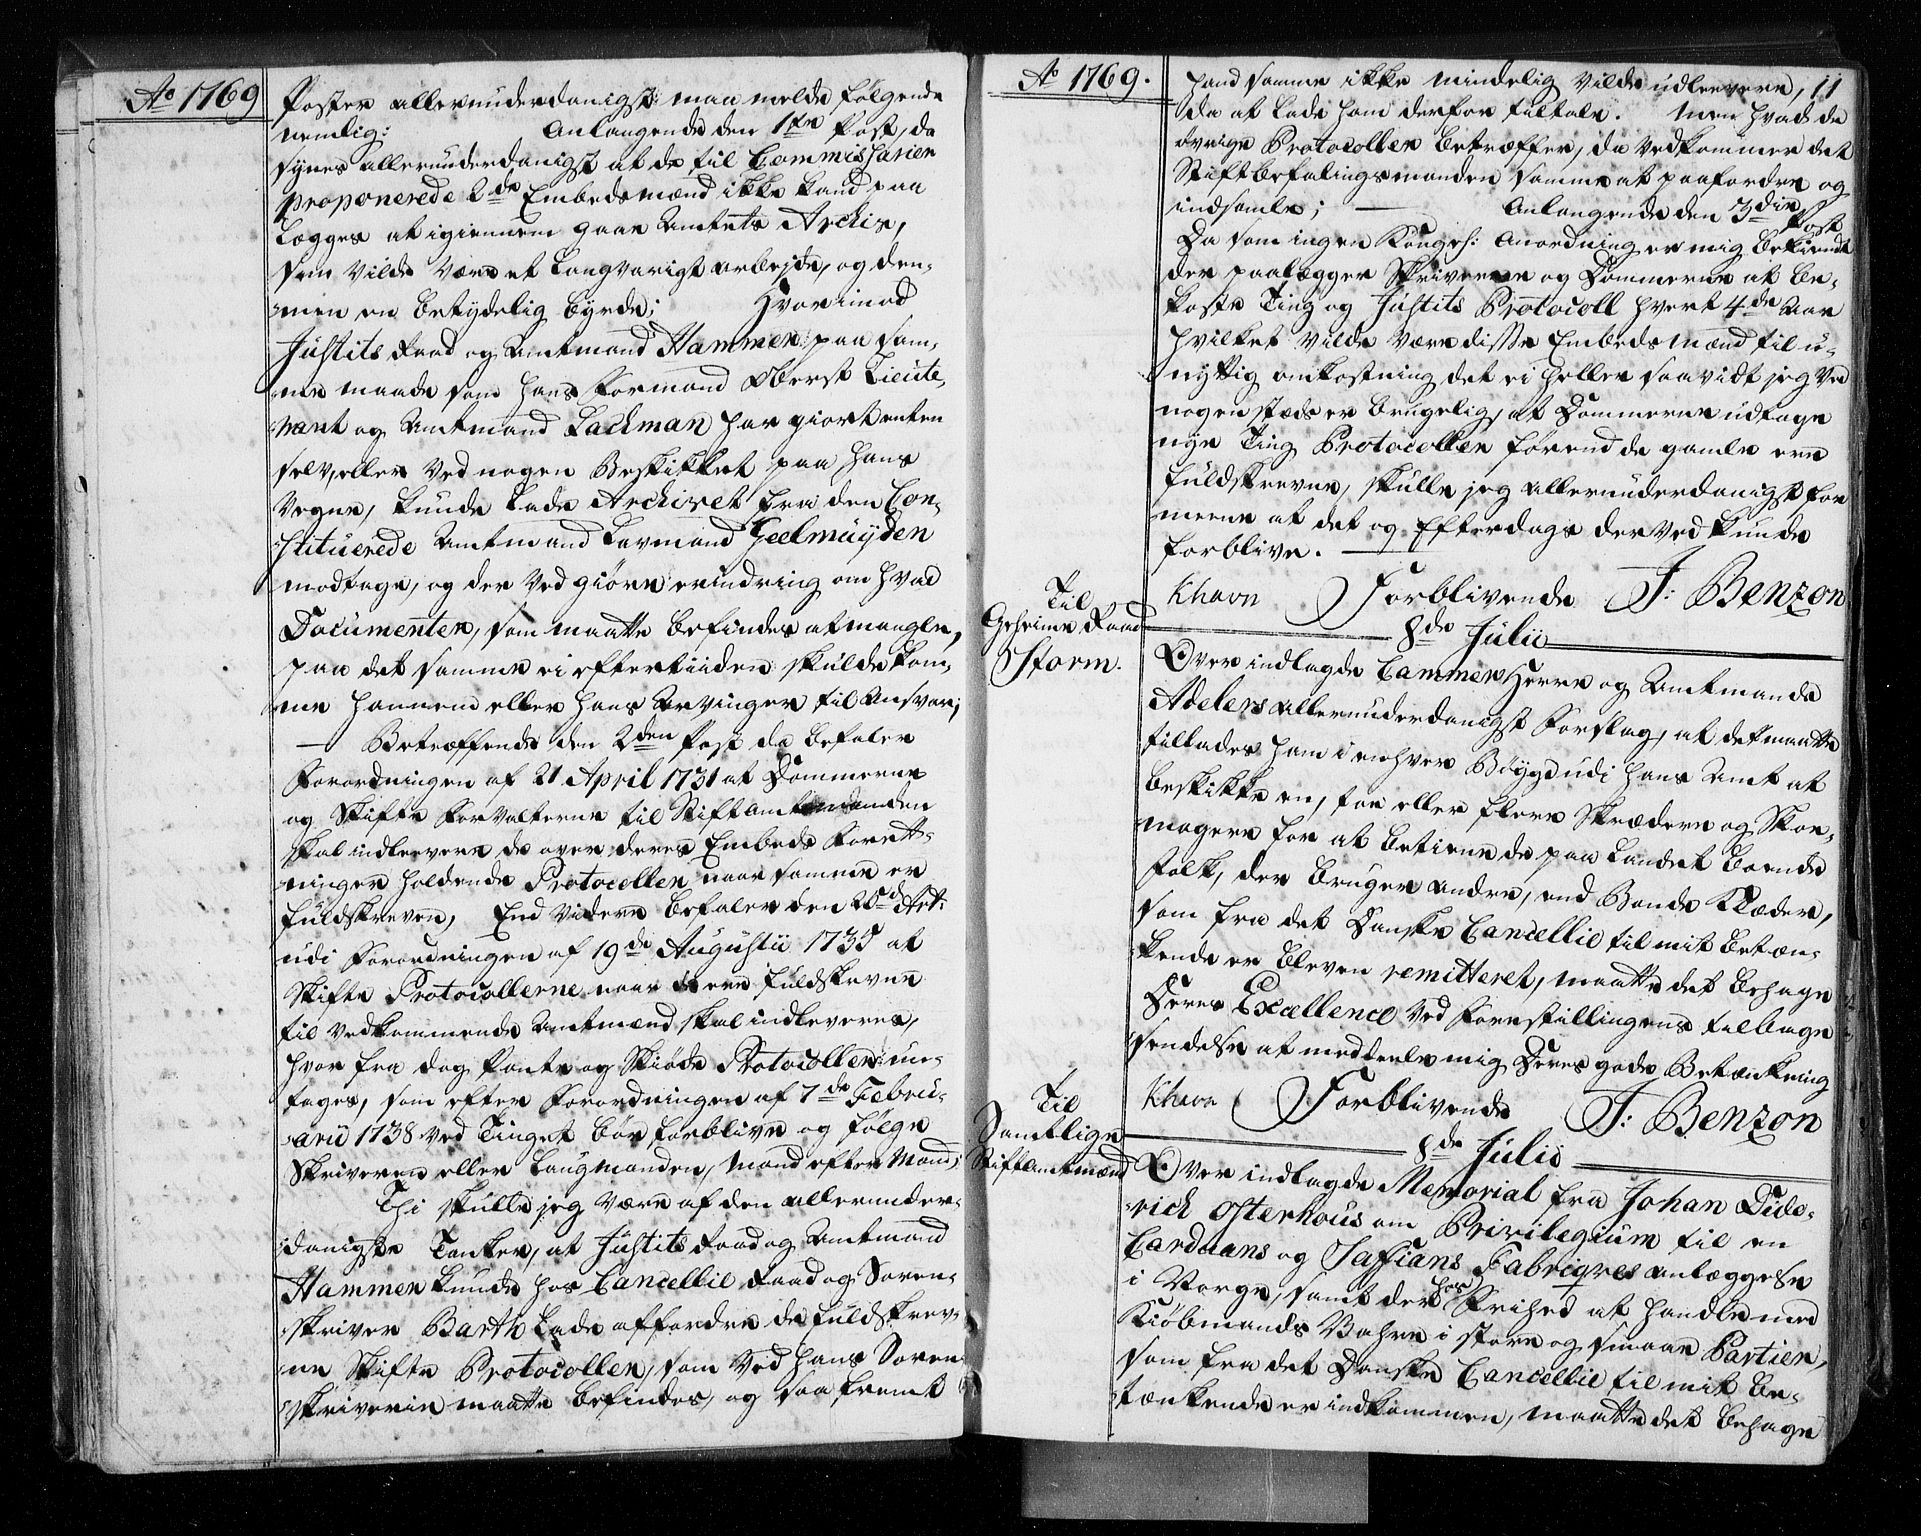 Ao 1769
Poster allerunderdanigst maa melde følgende
nemlig: Anlangende den 1ste Post, da
synes allerunderdanigst at de til Commissarier
proponerede 2de Embedsmænd ikke kand paa
Lægges at igiennem gaae Amtets Archiv,
som vilde være et langvarigt arbejde, og den-
men en betydelig byrde; Hvorimod
Justits Raad og Amtmand Hammer paa sam-
me maade som hans Formand Oberst Lieute-
nant og Amtmand Lachman har giort enten
selv, eller ved nogen Beskikket paa hans
Vegne, kunde lade Archivet fra den Con-
stituerede Amtmand Laumand Geelmuyden
modtage, og der ved giøre erindring om hvad
Documenter, som maatte befindes at mangle,
paa det samme ei eftertiiden skulde kom-
me hannem eller hans Arvinger til Ansvar;
— Betræffende den 2den Post da befaler
Forordningen af 21 April 1731 at Dommerne
og Skifte Forvalterne til Stiftamtmanden
skal indlevere de over deres Embeds Forrett-
ninger holdende Protocoller naar samme er
fuldskreven, End videre befaler den 20de Art:
udi Forordningen af 19de Augustii 1735 at
Skifte Protocollerne naar de ere fuldskevne
til vedkommende Amtmænd skal indleveres,
hvor fra dog Pante og Skiøde Protocoller und-
tages, som efter Forordningen af 7de Februa-
arii 1738 ved Tinget bør forblive og følge
Skriveren eller Laugmanden, Mand efter Mand;
Thi skulle jeg være af den allerunder-
danigste Tanker, at Justits Raad og Amtmand
Hammer kunde hos Cancellie Raad og Soren-
skriver Barth lade affordre de fuldskrev-
ne Skifte Protocoller, som ved hans Soren-
skriverie maatte befindes, og saa fremt
Ao 1769. 11
hand samme ikke mindelig vilde udlevere,
da at lade ham derfor tiltale. Men hvad de
øvrige Protocoller betræffer, da vedkommer det
Stiftbefalingsmanden samme at paafordre og
indsamle; — Anlangende den 3die Post
Da som ingen Kongel: Anordning er mig bekiendt
der paalægger Skriverne og Dommerne at be-
koste Ting og Justits Protocoll hvert 4de Aar
hvilket vilde være disse Embedsmænd til u-
nyttig omkostning det ei heller saavidt jeg ved
nogen stæds er brugelig, at Dommerne udtage
nye Ting Protocoller førend de gamle ere
fuldskrevne, skulle jeg allerunderdanigst for
meene at det og Efterdags derved kunde
forblive. —
Khavn Forblivende J: Benzon
8de Julii
Til
Geheime Raad
Storm.
Over indlagde Cammer Herre og Amtmande
Adelers allerunderdanigst Forslag, at det maatte
tillades ham i enhver Bøygd udi hans Amt at
beskikke en, toe eller flere Skrædere og Skoe-
magere for at betiene de paa Landet boende
Folk, der bruger andre, end Bonde Klæder,
som fra det Danske Cancellie til mit betæn-
kende er bleven remitteret, maatte det behage
Deres Excellence ved Forestillingens tilbage
sendelse at meddeele mig Deres gode Betænkning
Khavn Forblivende J: Benzon
8de Julii
Til
Samtlige
Stiftamtmænd
Over indlagde Memorial fra Johan Dide-
rich Osterhous om Privilegium til en
Carduans og Saffians Fabriqves anlæggelse
i Norge, samt der hos Frihed at handle med
Kiøbmands Vahre i store og smaae Partier,
som fra det Danske Cancellie til mit be-
tænkende er indkommen, maatte det behage